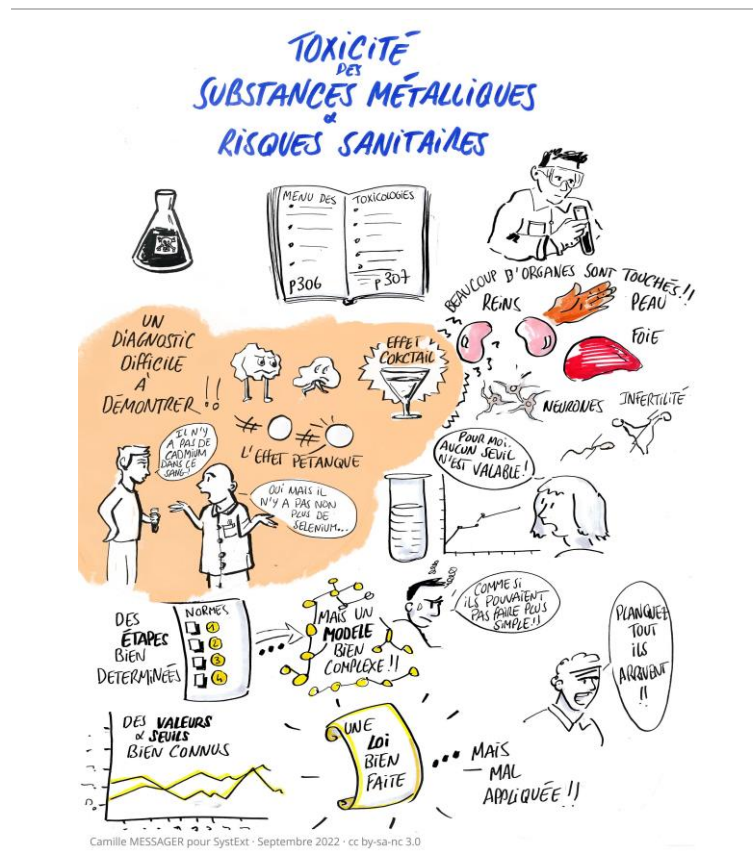 TOXICITÉ
DES
SUBSTANCES MÉTALLIQUES
&
RISQUES SANITAIRES
MENU DES TOXICOLOGIES
p306
p307
BEAUCOUP D'ORGANES SONT TOUCHÉS!!
REINS
PEAU
FOIE
NEURONES
INFERTILITÉ
UN
DIAGNOSTIC
DIFFICILE
À
DÉMONTRER!!
EFFET
COKCTAIL
L'EFFET PÉTANQUE
IL N'Y
A PAS DE
CADMIUM
DANS CE
SANG!
OUI MAIS IL
N'Y A PAS NON
PLUS DE
SELENIUM...
POUR MOI,
AUCUN SEUIL
N'EST VALABLE!
DES
ÉTAPES
BIEN
DETERMINÉES
NORMES
1
2
3
4
...
MAIS UN
MODÈLE
BIEN
COMPLEXE!!
COMME SI
ILS POUVAIENT
PAS FAIRE PLUS
SIMPLE!!
PLANQUEZ
TOUT
ILS
ARRIVENT
!!
DES VALEURS
& SEUILS
BIEN CONNUS
UNE
LOI
BIEN
FAITE
... MAIS
MAL
APPLIQUÉE!!
Camille MESSAGER pour SystExt · Septembre 2022 · cc by-sa-nc 3.0